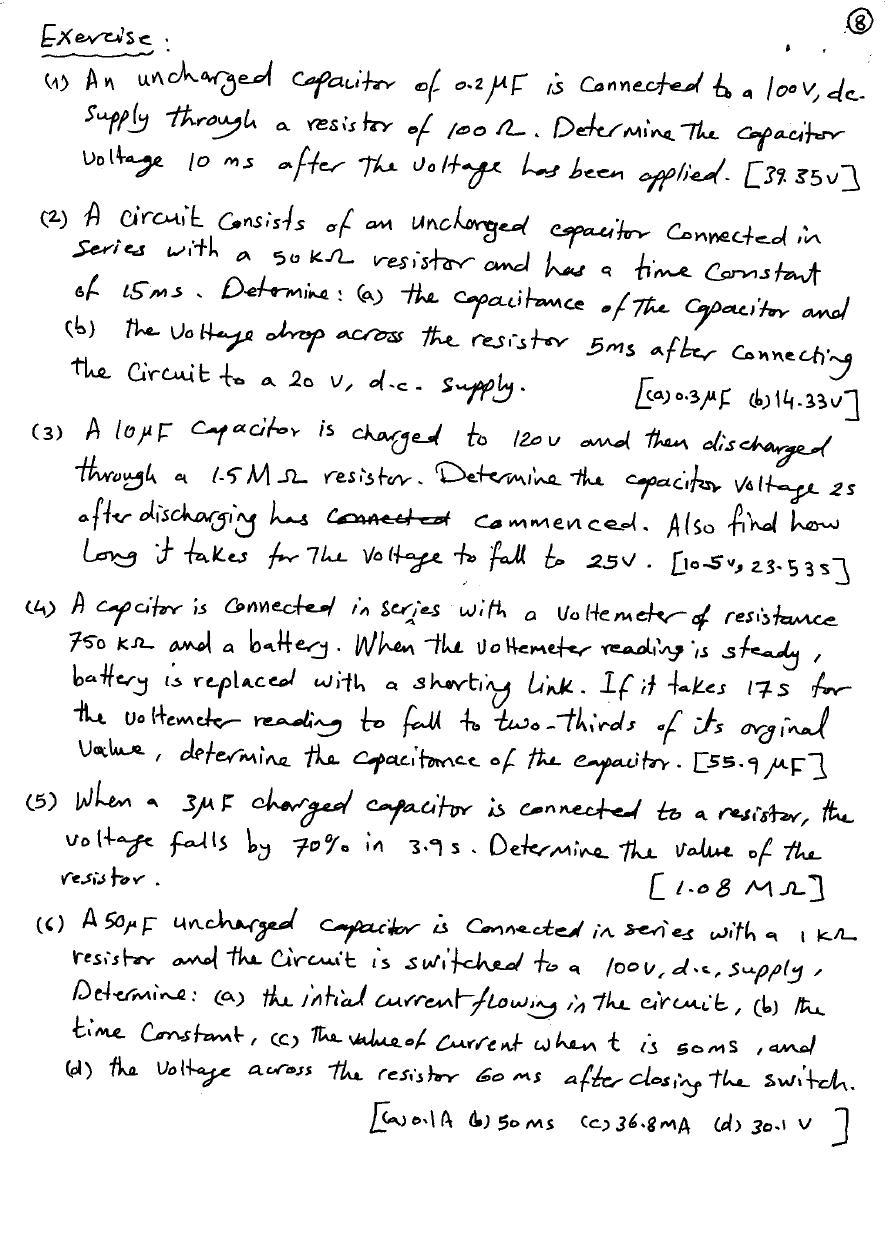 8
Exercise :
(1) An uncharged capacitor of 0.2 μF is Connected to a 100V, dc.
Supply through a resistor of 100 Ω. Determine The capacitor
Voltage 10 ms after the voltage has been applied. [39.35v]
(2) A circuit Consists of an uncharged capacitor Connected in
Series with a 50 KΩ resistor and has a time Constant
of 15ms. Determine: (a) the capacitance of The Capacitor and
(b) the Voltage drop across the resistor 5ms after Connecting
the Circuit to a 20 V, d.c. Supply. [(a) 0.3 μF (b) 14.33V]
(3) A 10μF Capacitor is charged to 120v and then discharged
through a 1.5 M Ω resistor. Determine the capacitor Voltage 2s
after discharging has Connected commenced. Also find how
Long it takes for The Voltage to fall to 25V. [105v, 23.53s]
(4) A capcitor is Connected in series with a Voltemeter of resistance
750 KΩ and a battery. When the voltemeter reading is steady,
battery is replaced with a shorting Link. If it takes 17s for
the voltemeter reading to fall to two-thirds of its orginal
Value, determine the Capacitance of the capacitor. [55.9 μF]
(5) When a 3μF charged capacitor is connected to a resistor, the
voltage falls by 70% in 3.9s. Determine The value of the
resistor. [1.08 MΩ]
(6) A 50μF uncharged capacitor is Connected in series with a 1 KΩ
resistor and the Circuit is switched to a 100v, d.c, supply,
Determine: (a) the intial current flowing in The circuit, (b) the
time Constant, (c) The value of Current when t is 50ms, and
(d) the Voltage across the resistor 60 ms after closing the switch.
[(a) 0.1A (b) 50 ms (c) 36.8 mA (d) 30.1 V ]